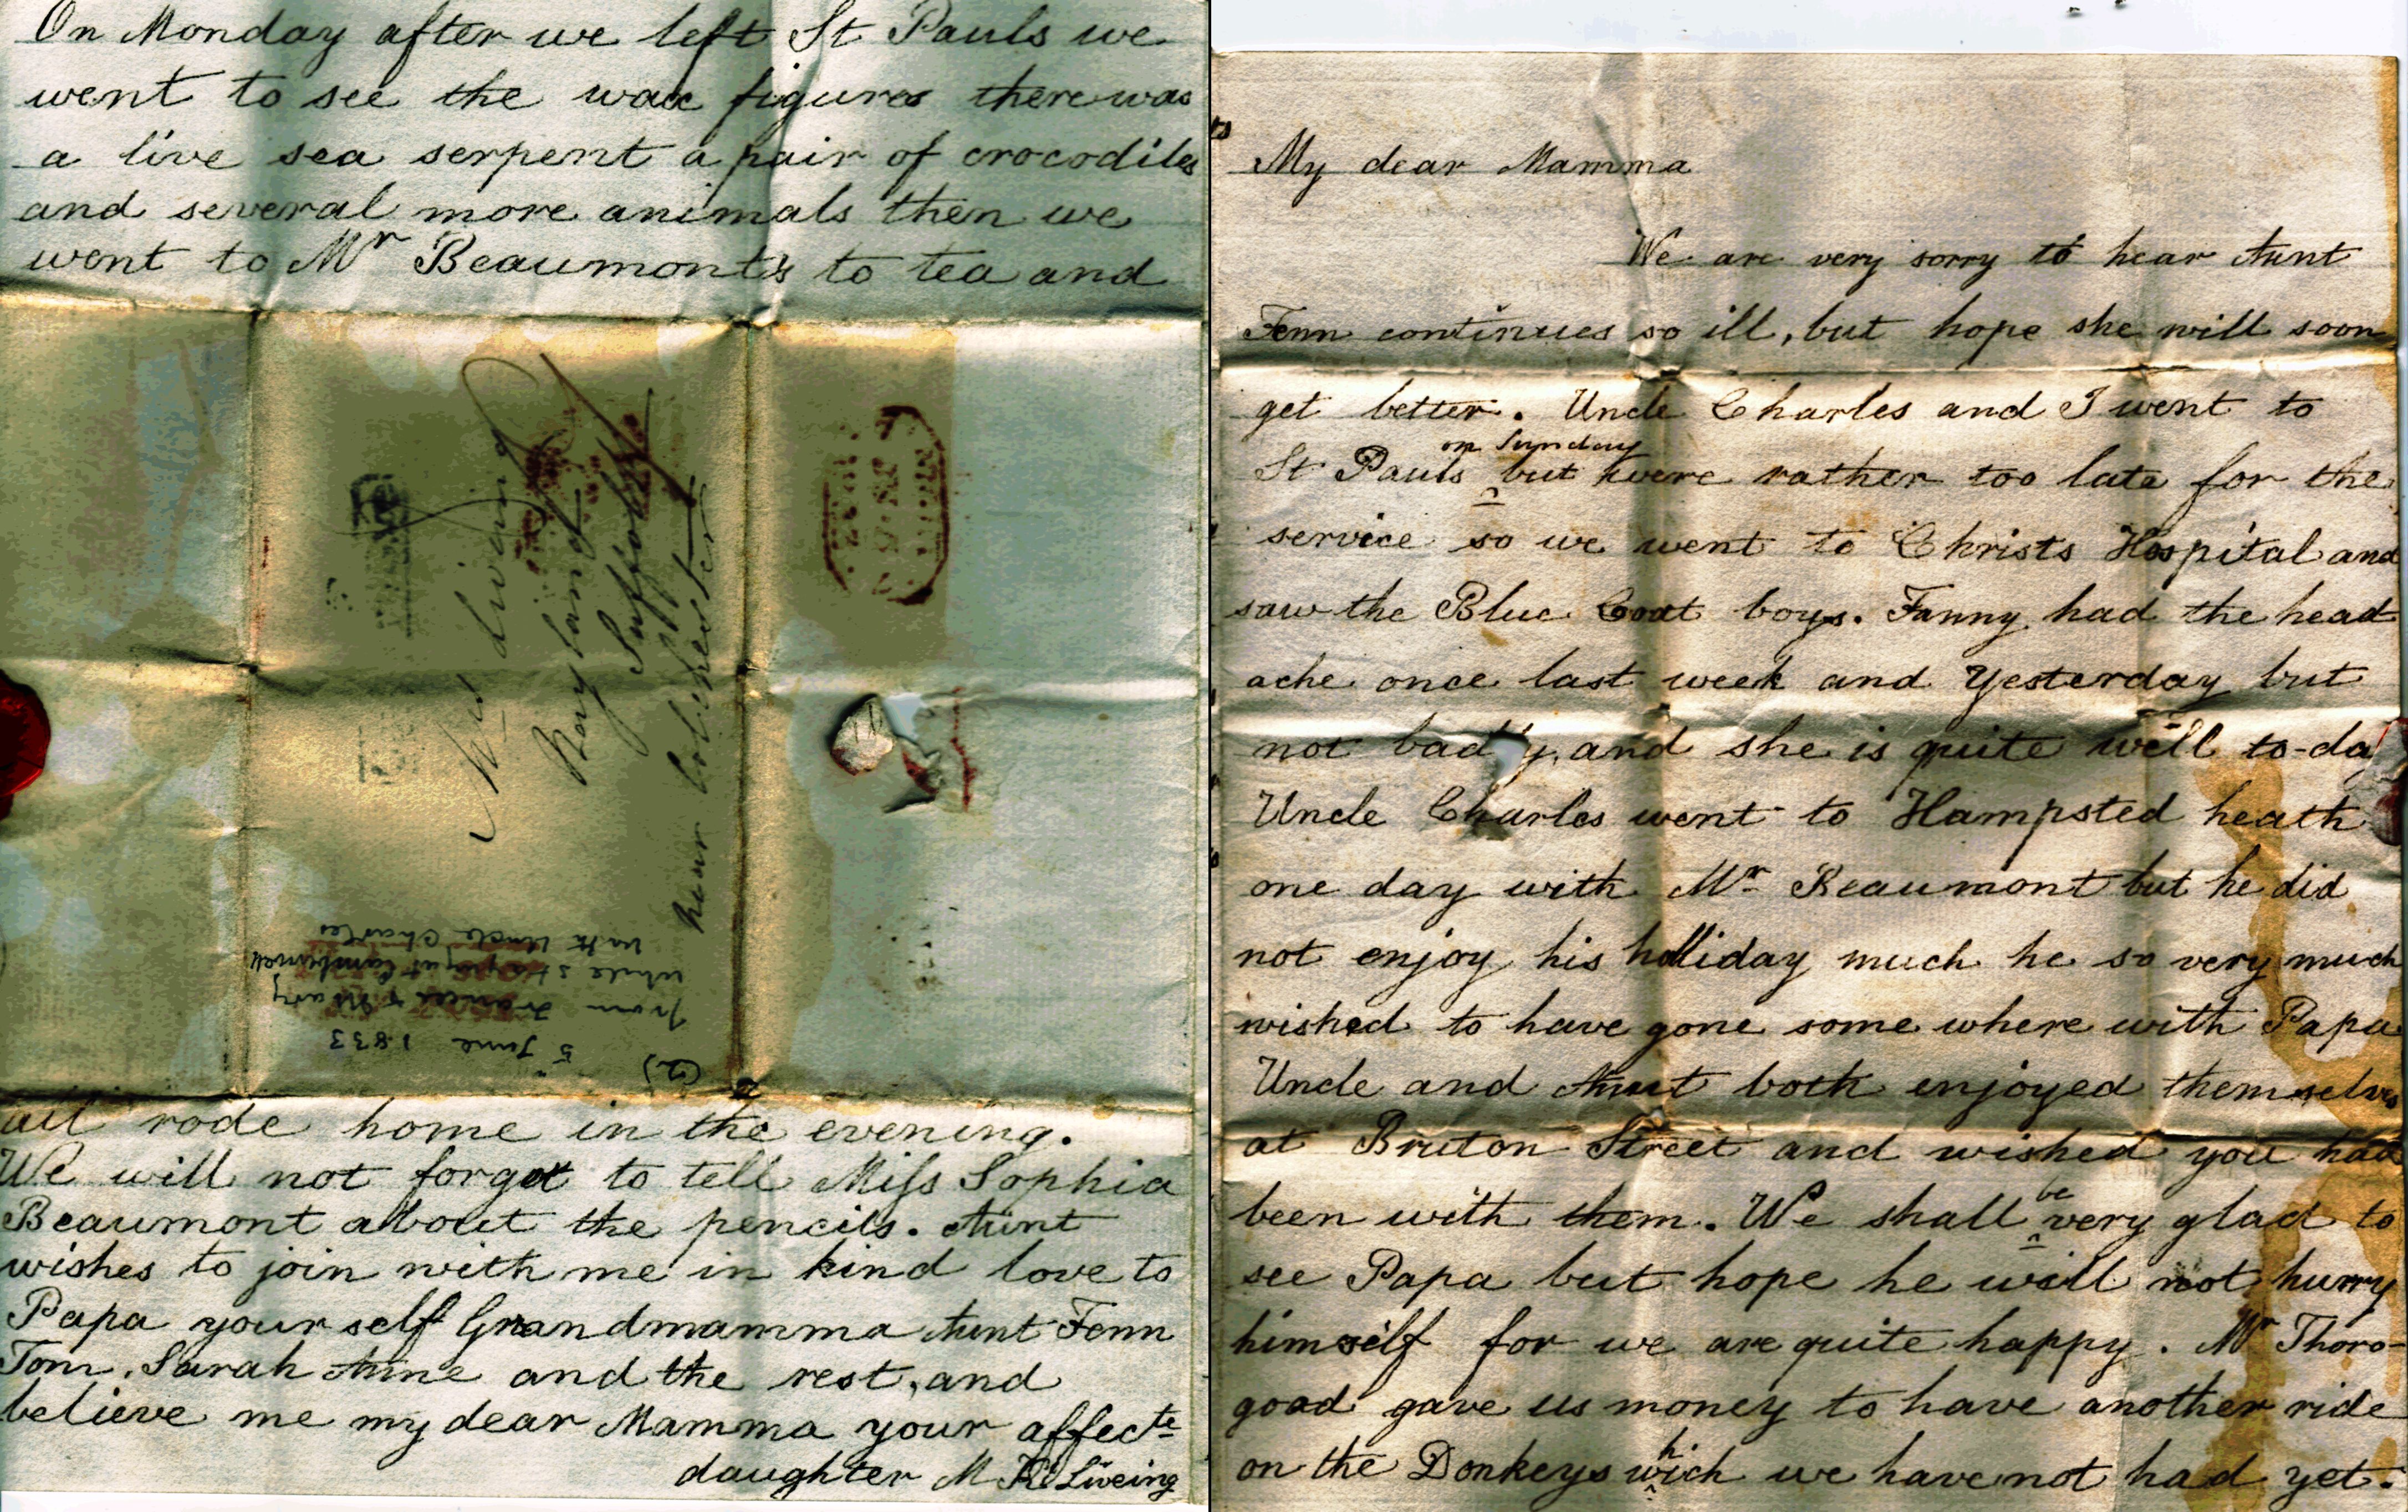 My dear Mamma
We are very sorry to hear Aunt
Fenn continues so ill, but hope she will soon
get better. Uncle Charles and I went to
on Sunday
St Pauls ^ but were rather too late for the
service so we went to Christs Hospital and
saw the Blue Coat boys. Fanny had the head
ache once last week and Yesterday but
not bad y, and she is quite well to-da
Uncle Charles went to Hampsted heath
one day with Mr Beaumont but he did
not enjoy his holliday much he so very much
wished to have gone some where with Papa
Uncle and Aunt both enjoyed themselves
at Bruton Street and wished you had
been with them. We shall ^be very glad to
see Papa but hope he will not hurry
himself for we are quite happy. Mr Thoro-
good gave us money to have another ride
on the Donkeys w^hich we have not had yet.
On Monday after we left St Pauls we
went to see the wax figures there was
a live sea serpent a pair of crocodiles
and several more animals then we
went to Mr Beaumonts to tea and
all rode home in the evening.
We will not forget to tell Miss Sophia
Beaumont about the pencils. Aunt
wishes to join with me in kind love to
Papa your self Grandmamma Aunt Fenn
Tom, Sarah Anne and the rest, and
believe me my dear Mamma your affecte
daughter M Liveing
Mrs Liveing
Nayland
Suffolk
near Colchester
(2)
5 June 1833
from Frances & Mary
while staying at Camberwell
with Uncle Charles